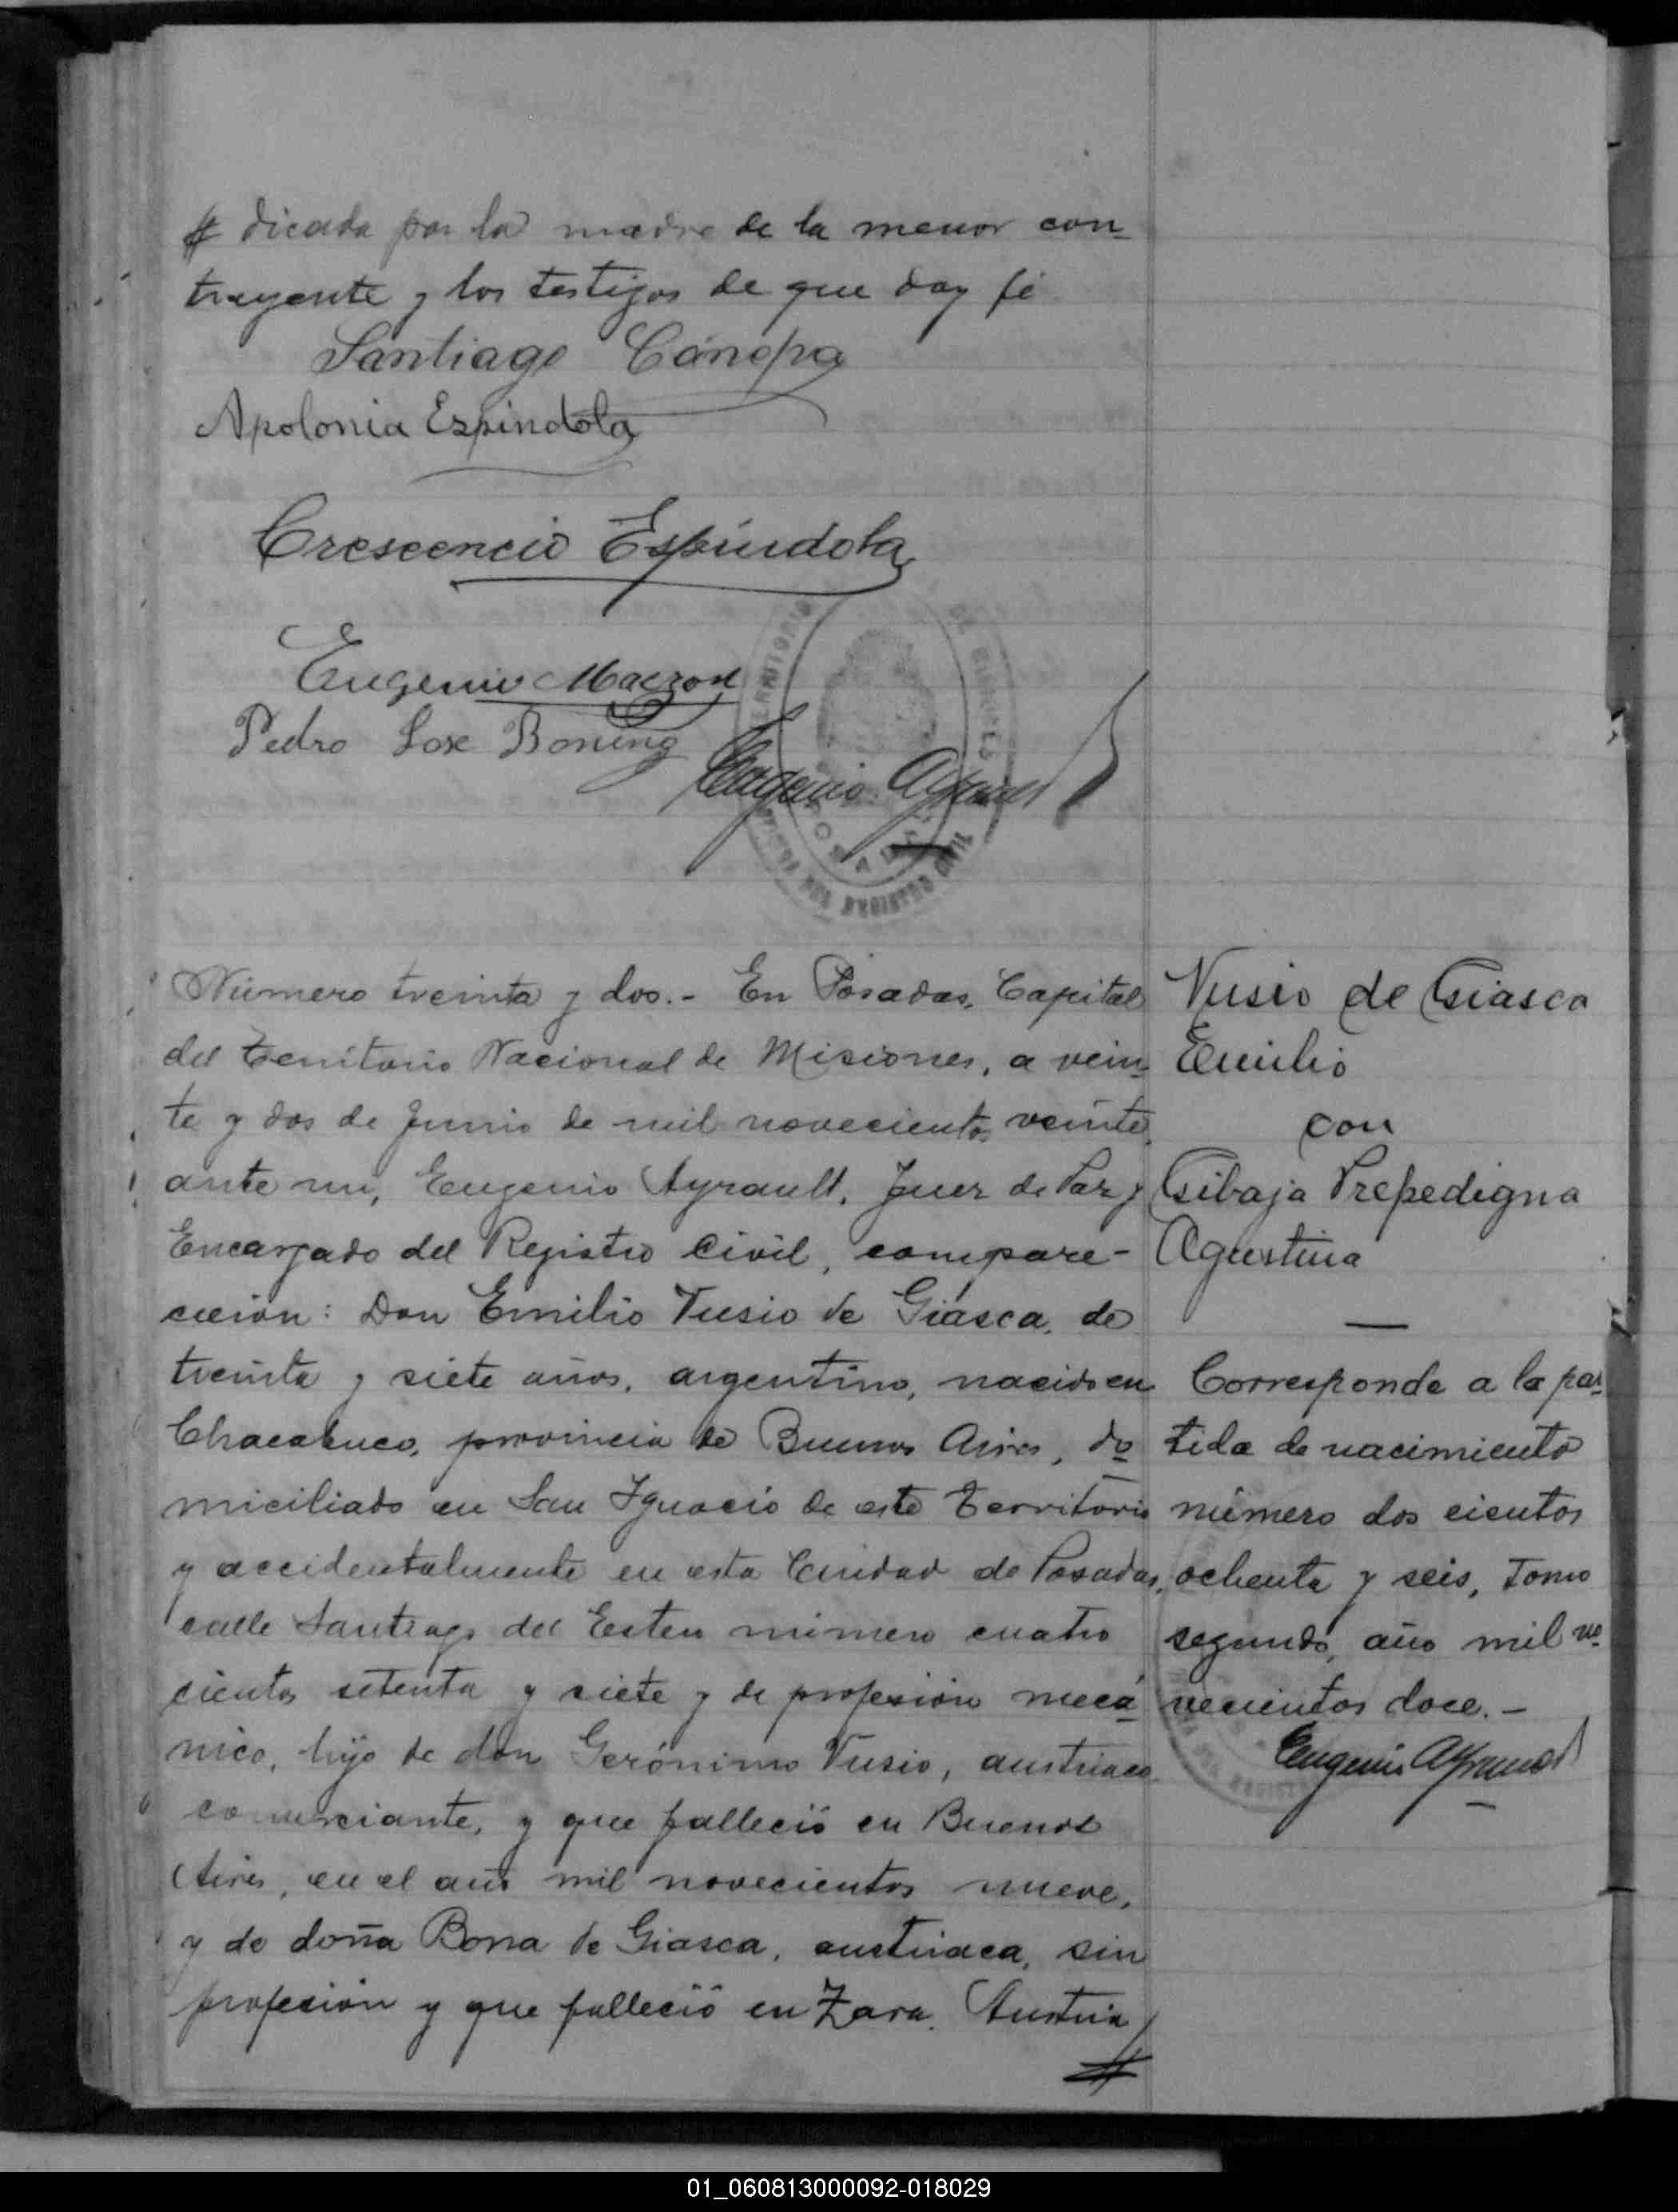 # dicada por la madre de la menor con-
trayente y los testigos de que doy fé
Santiago Cánepa
Apolonia Espindola
Crescencio Espíndola
Eugenio
Pedro Jose Boning
Eugenio Ayrault
Número treinta y dos.- En Posadas, Capital
del Territorio Nacional de Misiones, a vein-
te y dos de Junio de mil novecientos veinte,
ante mi, Eugenio Ayrault, Juez de Paz y
Encargado del Registro Civil, compare-
cieron: Don Emilio Vusio de Giasca, de
treinta y siete años, argentino, nacido en
Chacabuco, provincia de Buenos Aires, do-
miciliado en San Ignacio de este Territorio
y accidentalmente en esta Ciudad de Posadas,
calle Santiago del Estero número cuatro
cientos setenta y siete y de profesión mecá-
nico, hijo de don Gerónimo Vusio, austriaco
comerciante, y que falleció en Buenos
Aires, en el año mil novecientos nueve,
y de doña Bona de Giasca, austriaca, sin
profesión y que falleció en Zara, Austria
#
Vusio de Giasca
Emilio
con
Gibaja Prepedigna
Agustina
Corresponde a la par-
tida de nacimiento
número dos cientos
ochenta y seis, Tomo
segundo, año mil no-
vecientos doce.-
Eugenio Ayrault
01_060813000092-018029